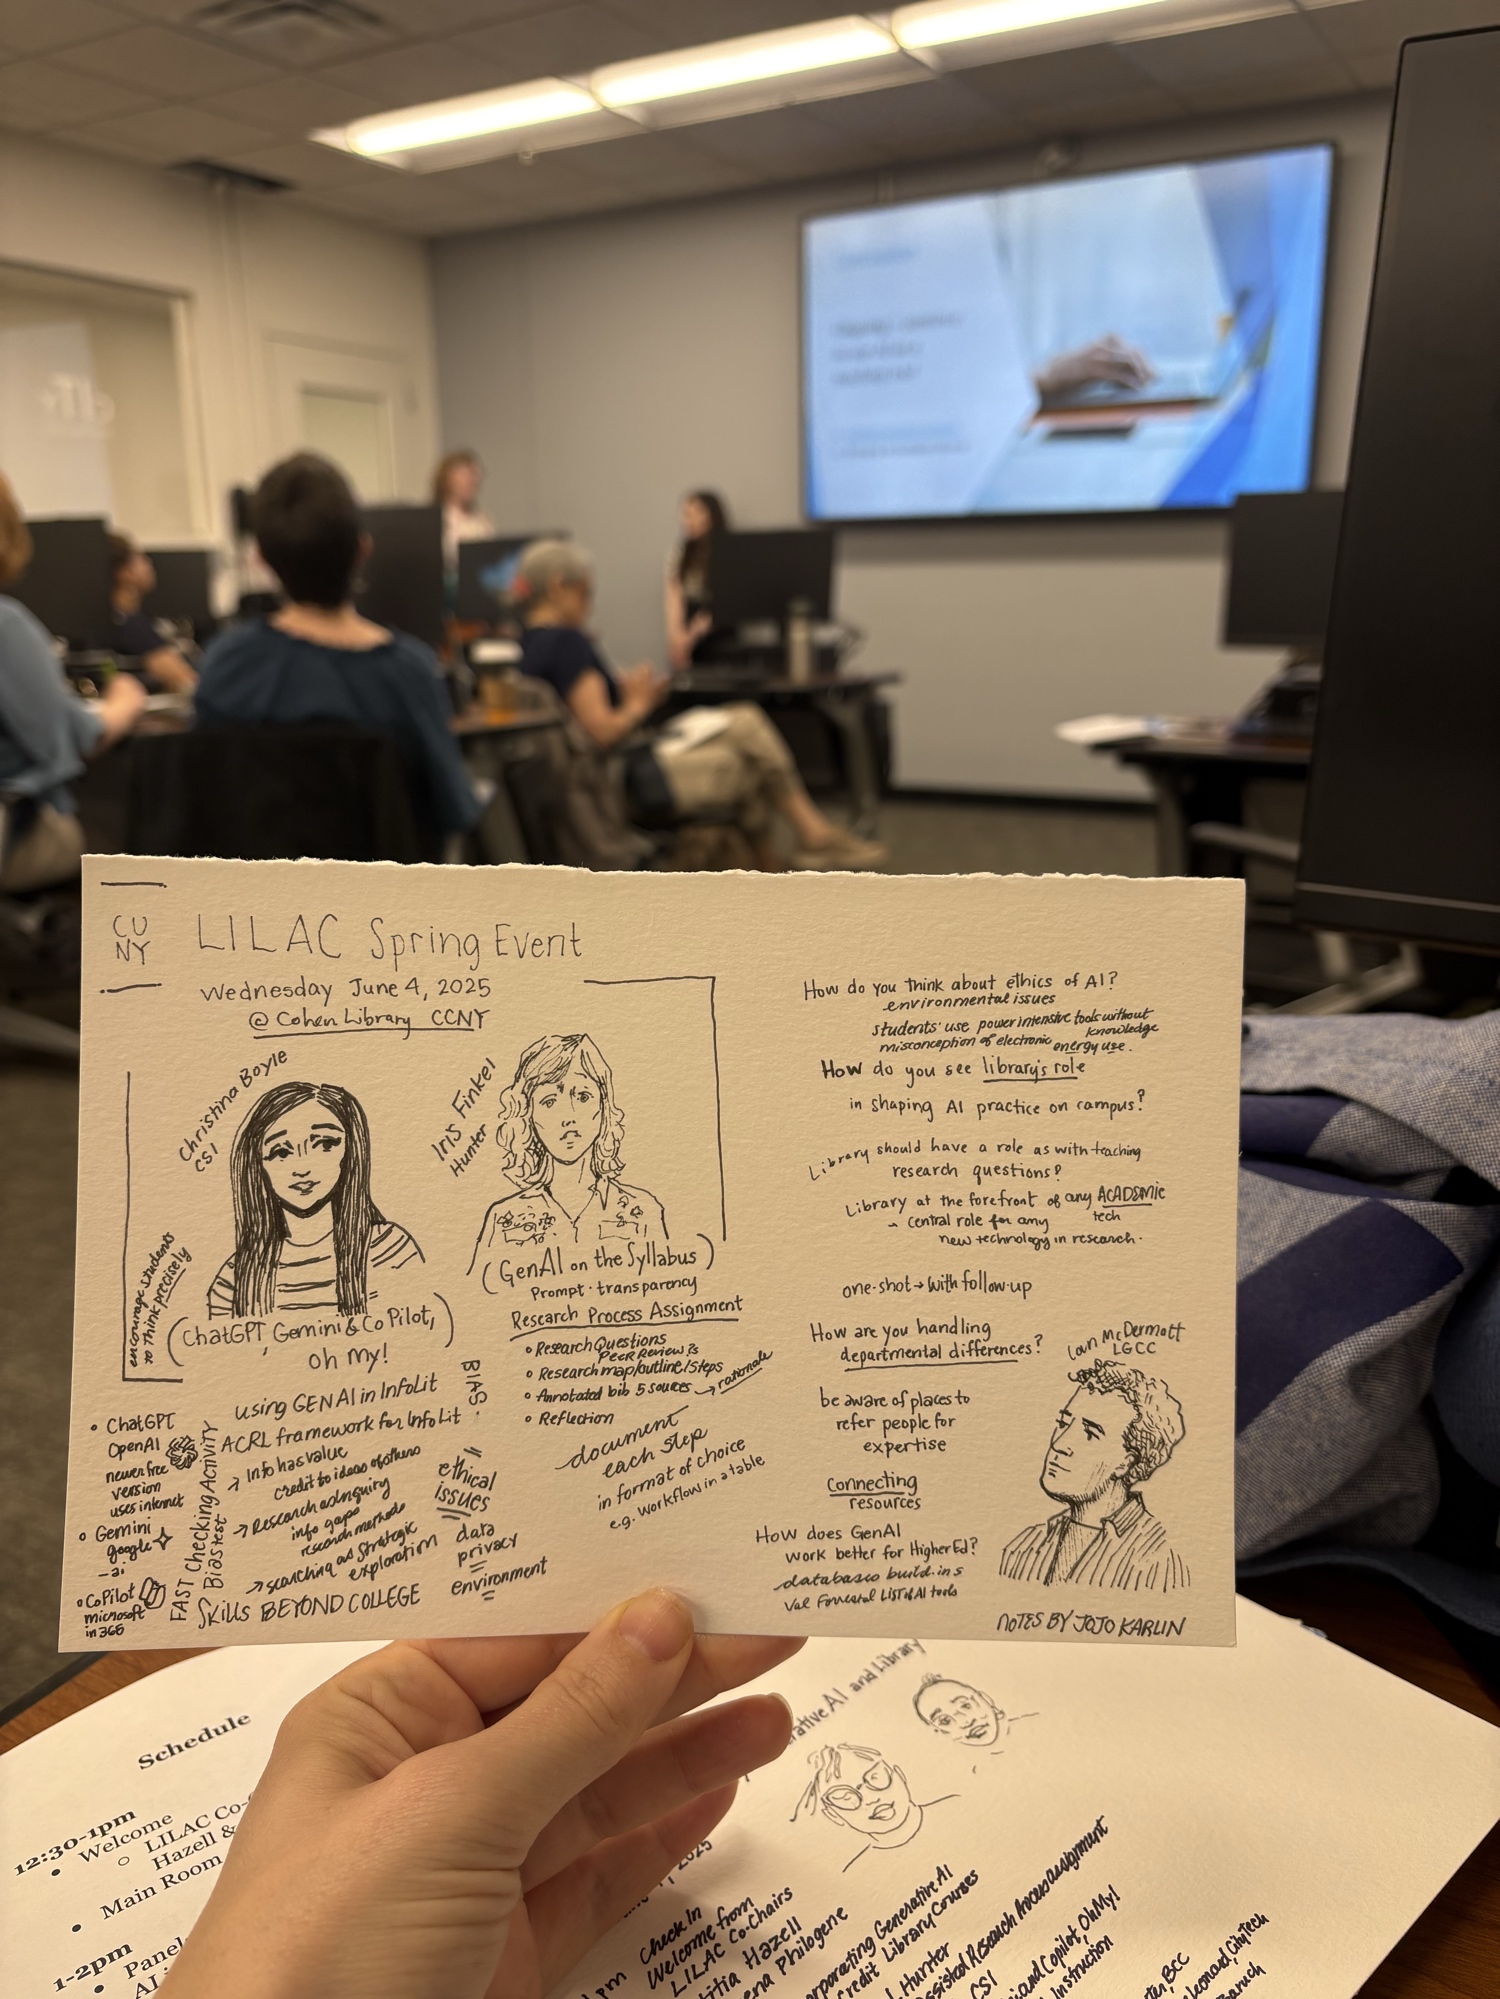 CU
NY
LILAC Spring Event
Wednesday June 4, 2025
@ Cohen Library CCNY
Christina Boyle
CSI
Iris Finkel
Hunter
encourage students
to think precisely
(ChatGPT, Gemini & CoPilot,
oh my!)
using GENAI in InfoLit
ACRL framework for InfoLit
→ Info has value
credit to ideas of others
→ Research as Inquiry
info gaps
research methods
→ searching as Strategic
exploration
SKills BEYOND COLLEGE
• ChatGPT
OpenAI
newer free
version
uses internet
• Gemini
google
-ai
• CoPilot
microsoft
in 365
FAST Checking ACTIVITY
Bias test
BIAS.
"ethical
issues"
data
privacy
environment
(GenAI on the Syllabus)
Prompt · transparency
Research Process Assignment
• Research Questions
Peer Review ?s
• Research map/outline/steps
• Annotated bib 5 sources → rationale
• Reflection
document
each step
in format of choice
e.g. workflow in a table
How do you think about ethics of AI?
environmental issues
students' use power intensive tools without
knowledge
misconception of electronic energy use.
How do you see library's role
in shaping AI practice on campus?
Library should have a role as with teaching
research questions?
Library at the forefront of any ACADEMIC
tech
→ central role for any
new technology in research.
one-shot → with follow-up
How are you handling
departmental differences?
Ian McDermott
LGCC
be aware of places to
refer people for
expertise
Connecting
resources
How does GenAI
work better for HigherEd?
databases build-ins
Val Forrestal LIST of AI tools
NOTES BY JOJO KARLIN
Schedule
12:30-1pm
• Welcome
○ LILAC Co-
Hazell &
• Main Room
1-2pm
• Panel
AI and Library
2025
Check In
Welcome from
LILAC Co-Chairs
Hazell
Philogene
Generative AI
Credit Library Courses
Hunter
Assisted Research Process assignment
CSI
and Copilot, Oh My!
Instruction
BCC
Leonard, CityTech
Baruch